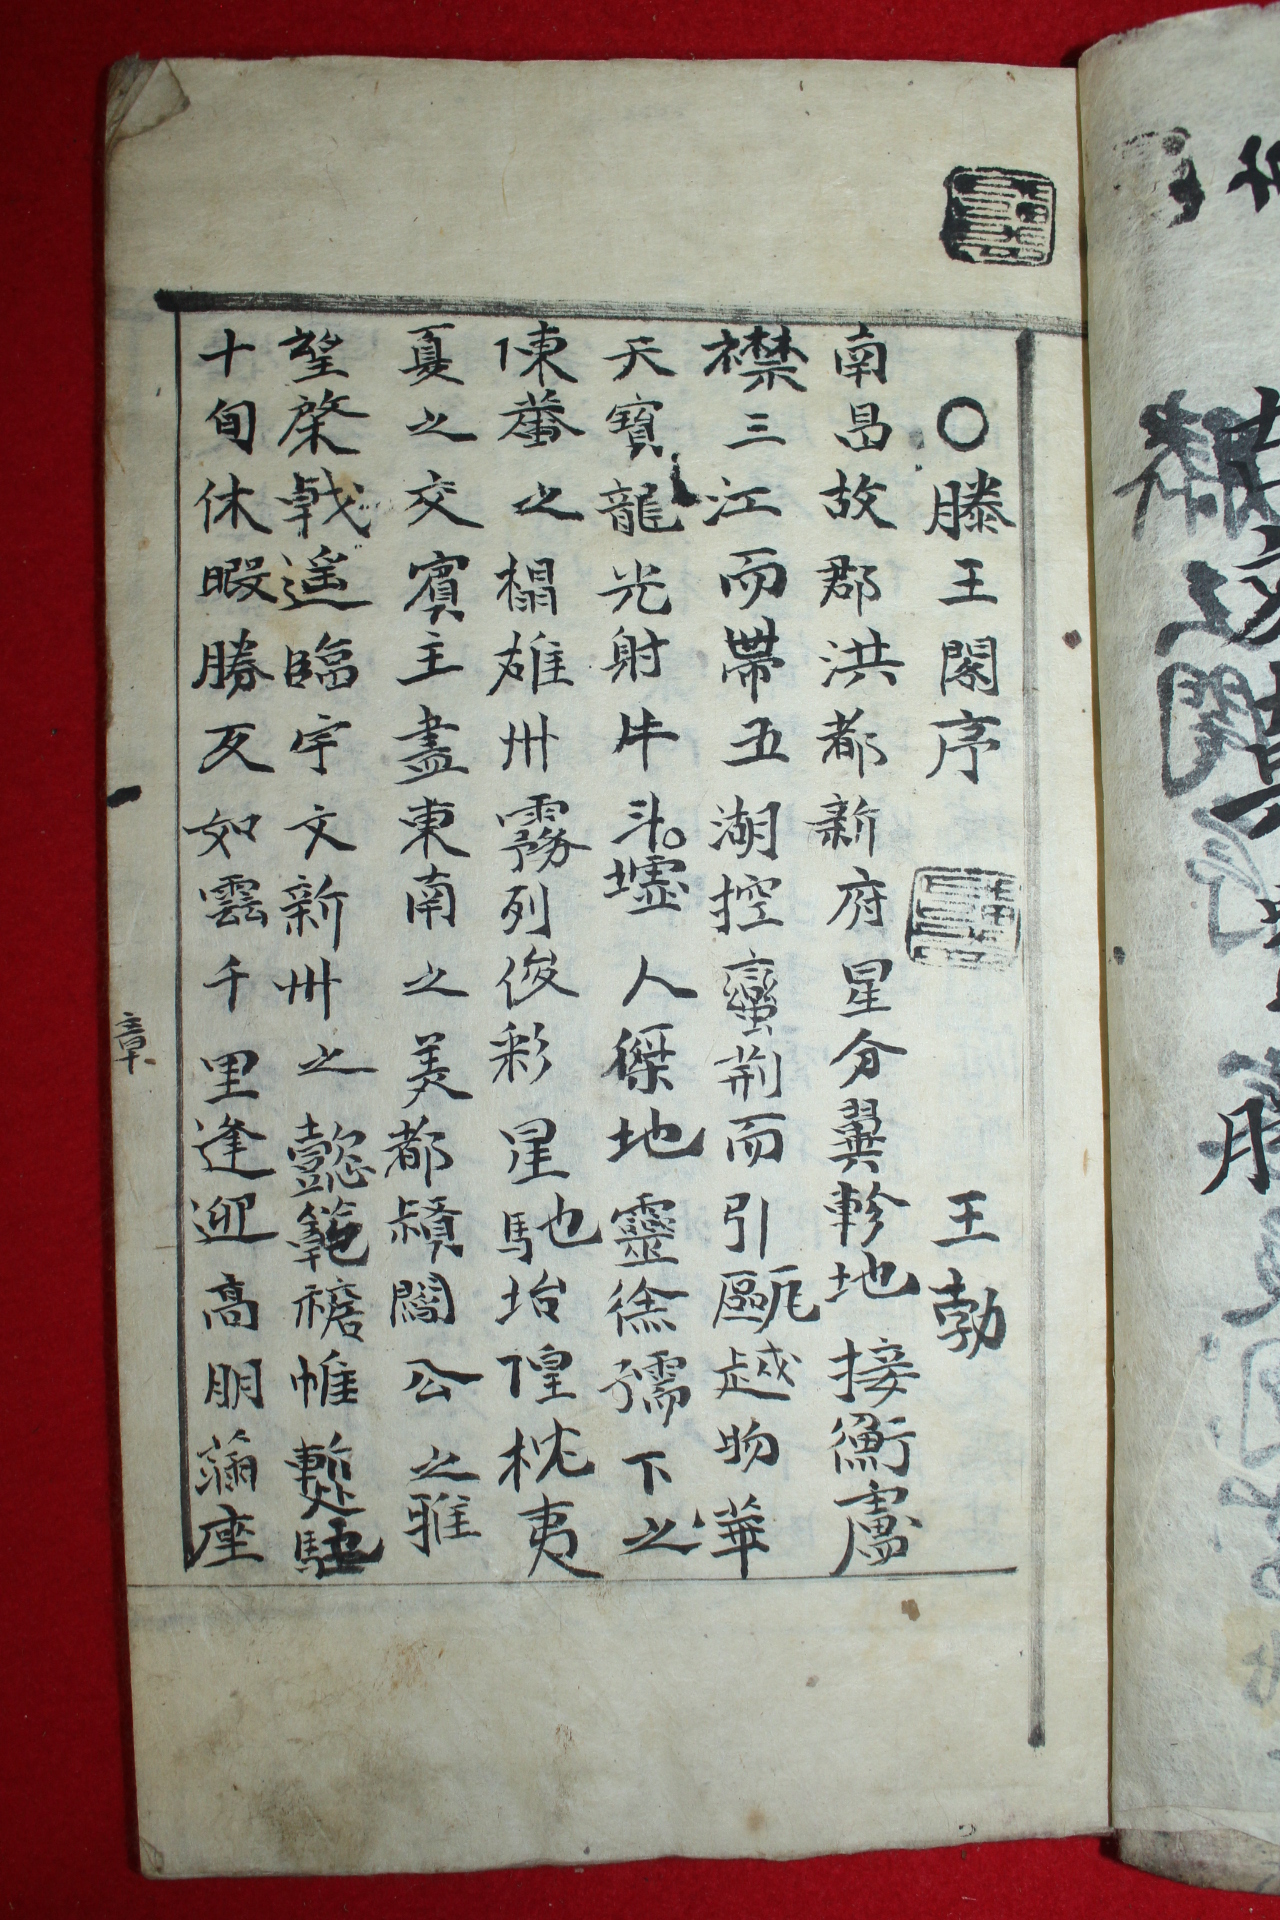 ○滕王閣序 王勃
南昌故郡洪都新府星分翼軫地接衡廬
襟三江而帶五湖控蠻荊而引甌越物華
天寶龍光射牛斗墟人傑地靈徐孺下之
陳蕃之榻雄州霧列俊彩星馳坮隍枕夷
夏之交賓主盡東南之美都督閻公之雅
望棨戟遥臨宇文新州之懿範襜帷暫駐
十旬休暇勝友如雲千里逢迎高朋滿座
章